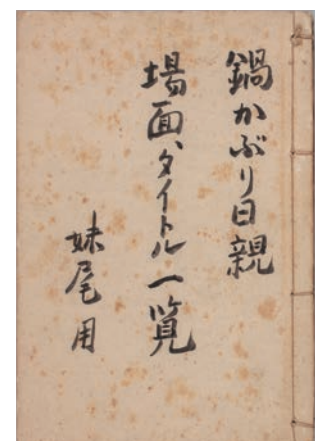 鍋かぶり日親
場面、タイトル一覧
妹尾用